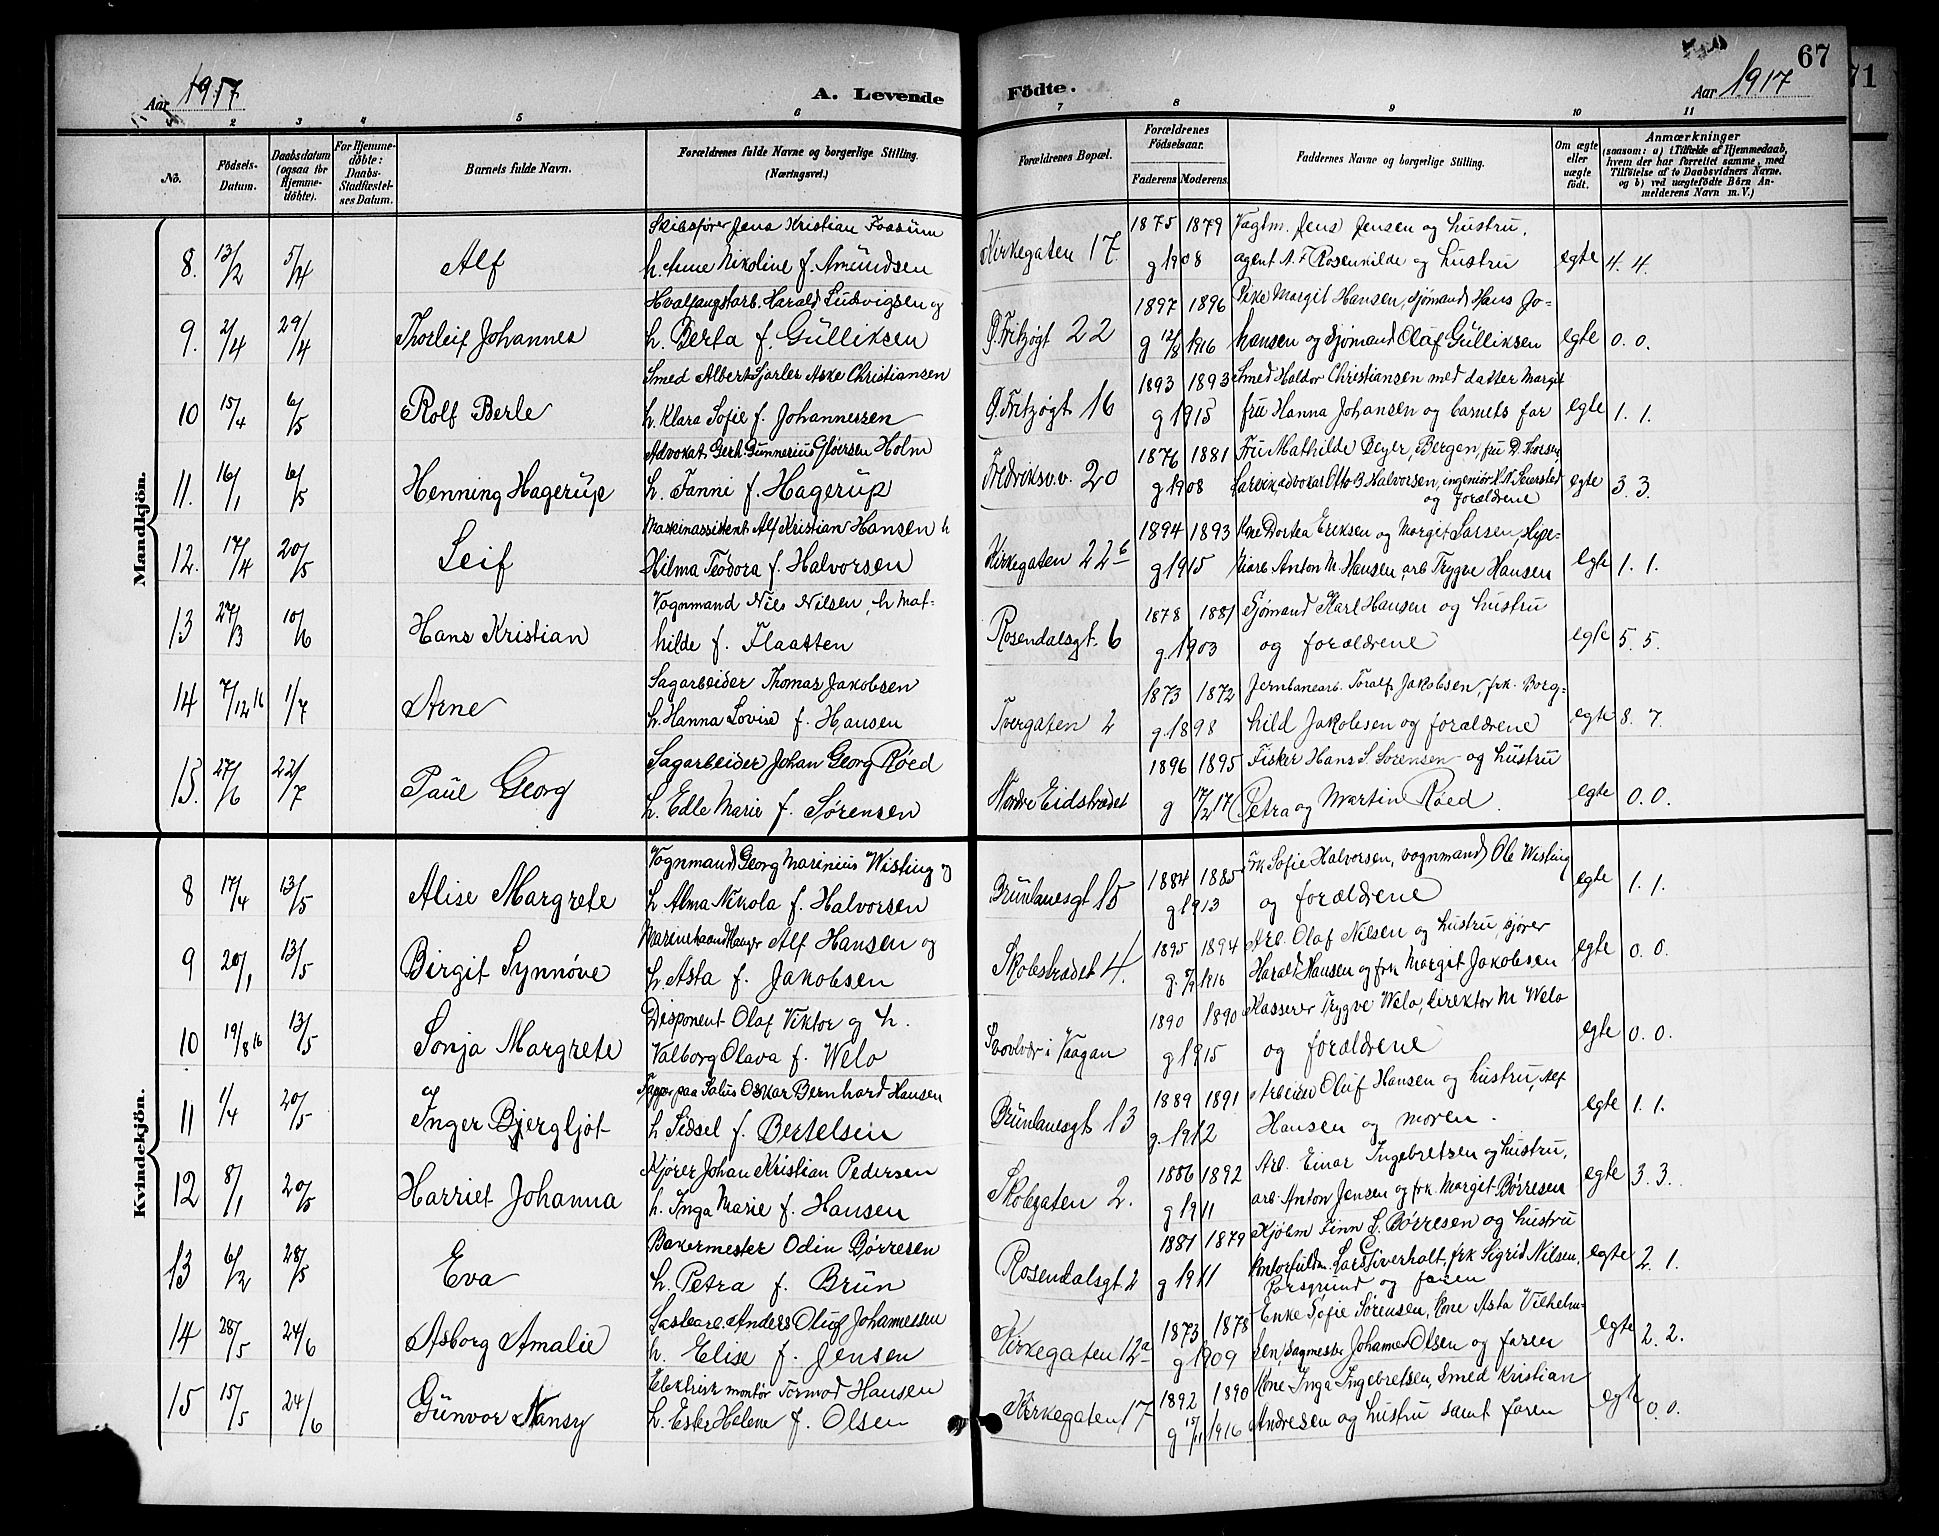 Aar 1917
A. Levende
Fødte.
Aar 1917
67
71
2 3 4 5 6 7 8 9 10 11
No.
Fødsels-Datum.
Daabsdatum (ogsaa for Hjemme-døbte).
For Hjemme-døbte: Daabs-Stadfæstel-ses Datum.
Barnets fulde Navn.
Forældrenes fulde Navne og borgerlige Stilling. (Næringsvei.)
Forældrenes Bopæl.
Forældrenes Fødselsaar.
Faderens. Moderens.
Faddernes Navne og borgerlige Stilling.
Om ægte eller uægte født.
Anmærkninger
(saasom: a) i Tilfælde af Hjemmedaab, hvem der har forrettet samme, med Tilføielse af to Daabsvidners Navne, og b) ved uægtefødte Børn An-melderens Navn m. V.)
Mandkjøn.
8. 13/2 5/4 Alf
Skibsfører Jens Kristian Fossum
h. Anne Nikoline f. Amundsen
Kirkegaten 17.
1875 1879
g 1908
Vagtm. Jens Jensen og hustru,
agent A. F. Rosenkilde og hustru
egte 4. 4.
9. 2/4 29/4 Thorleif Johannes
Hvalfangstarb. Harald Ludvigsen og
h. Berta f. Gulliksen
Ø. Fritzøgt 22
1897 1896
g 12/8 1916
Pike Margit Hansen, sjømand Hans Jo-
hansen og sjømand Olaf Gulliksen
egte 0. 0.
10 15/4 6/5 Rolf Berle
Smed Albert Sjarler Aske Christiansen
h. Klara Sofie f. Johannessen
Ø. Fritzøgt 16
1893 1893
g 1915
Smed Haldor Christiansen med datter Margit
fru Hanna Johansen og barnets far
egte 1. 1.
11. 16/1 6/5 Henning Hagerup
Advokat Gerh. Gunnerius Gløersen Holm
h. Fanni f. Hagerup
Fredriksv.v. 20
1876 1881
g 1908
Fru Mathilde Beyer, Bergen, fru D. Thorsen
Larvik, advokat Otto B Halvorsen, ingeniør
og forældrene
egte 3. 3.
12. 17/4 20/5 Leif
Maskinassistent Alf Kristian Hansen h
Hilma Teodora f. Halvorsen
Kirkegaten 22 b
1894 1893
g 1915
Kone Dortea Eriksen og Margit Larsen, slipe-
riarb Anton M. Hansen, arb Trygve Hansen
egte 1. 1.
13 27/3 10/6 Hans Kristian
Vognmand Nils Nilsen, h Mat-
hilde f. Flaatten
Rosendalsgt. 6
1878 1881
g. 1903
Sjømand Karl Hansen og hustru
og forældrene
egte 5. 5.
14 7/12 16 1/7 Arne
Sagarbeider Thomas Jakobsen
h. Hanna Lovise f. Hansen
Tvergaten 2
1873 1872
g. 1898
Jernbanearb. Toralf Jakobsen, frk. Borg-
hild Jakobsen og forældrene
egte 8. 7.
15. 27/6 22/7 Paul Georg
Sagarbeider Johan Georg Røed
h. Edle Marie f. Sørensen
Nordre Eidstrædet
1896 1895
g 17/2 17
Fisker Hans S. Sørensen og hustru
Petra og Martin Røed.
egte 0. 0.
Kvindekjøn.
8 17/4 13/5 Alise Margrete
Vognmand Georg Marinius Wisting og
h. Alma Nikola f. Halvorsen
Brunlanesgt 15
1884 1885
g 1913
Frk Sofie Halvorsen, vognmand Ole Wisting
og forældrene
egte 1. 1.
9 20/1 13/5 Birgit Synnøve
Marinehaandlanger Alf Hansen og
h. Asta f. Jakobsen
Skolestrædet 4.
1895 1894
g. 1916
Arb. Olaf Nilsen og hustru, kjører
Harald Hansen og frk Margit Jakobsen
egte 0. 0.
10 19/8 16 13/5 Sonja Margrete
Disponent Olaf Viktor og h.
Valborg Olava f. Welo
Svolvær i Vaagan
1890 1890
g 1915
Kasserer Trygve Welo, direktør M Welo
og forældrene
egte 0. 0.
11 1/4 20/5 Inger Bjergljot
Tapper paa Salus Oskar Bernhard Hansen
h. Sidsel f. Bertelsen
Brunlanesgt 13
1889 1891
g. 1912
Arbeider Oluf Hansen og hustru, Alf
Hansen og moren.
egte 1. 1.
12 8/1 20/5 Harriet Johanna
Kjører Johan Kristian Pedersen
h. Inga Marie f. Hansen
Skolegaten 2.
1886 1892
g 1911
Arb. Einar Ingebretsen og hustru,
arb. Anton Jensen og frk. Margit Børresen
egte 3. 3.
13 6/2 28/5 Eva
Bakermester Odin Børresen
h. Petra f. Brun
Rosendalsgt 2
1881 1879
g 1911
Kjøbm Finn L. Børresen og hustru
Kontorfuldm. Lars Tiverholt, frk Sigrid Nilsen,
Porsgrund og faren
egte 2. 1.
14 28/5 24/6 Asborg Amalie
Anders Oluf Johannessen
h. Elise f. Jensen
Kirkegaten 12 a
1873 1878
g 1909
Enke Sofie Sørensen, kone Asta Vilhelm-
sen, sagmester Johannes Olsen og faren
egte 2. 2.
15 15/5 24/6 Gunvor Nansy
Elektrisk montør Tormod Hansen
h. Ester Helene f. Olsen
Kirkegaten 17
1892 1890
g 15/11 1916
Kone Inga Ingebretsen, Smed Kristian
Andresen og hustru samt faren
egte 0. 0.